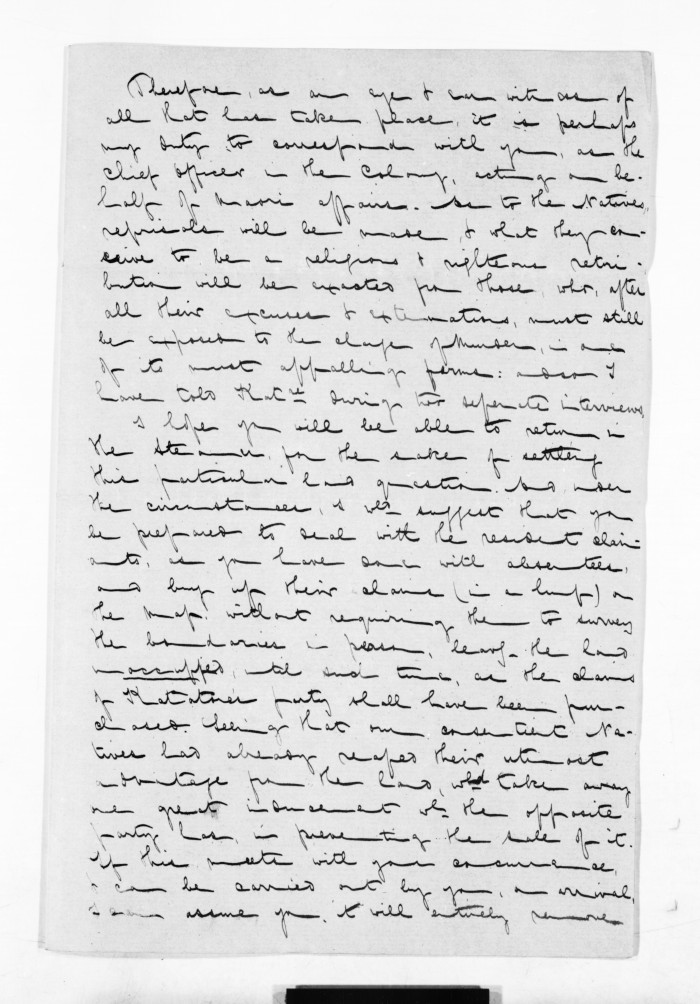 Therefore, as an eye & ear witness of
all that has taken place, it is perhaps
my duty to correspond with you, as the
Chief Officer in the Colony, acting on be-
half of Maori affairs. As to the Natives,
reprisals will be made, & what they con-
ceive to be a religious & righteous retri-
bution will be exacted from those, who, after
all their excuses & extenuations, must still
be exposed to the charge of Murder, in one
of its most appalling forms: and so I
have told Katre during two seperate interviews.
I hope you will be able to return in
the Steamer, for the sake of settling
this particular land question. And under
the circumstances, I wld suggest that you
be prepared to deal with the resident claim-
ants, as you have done with absentees,
and buy up their claims (in a lump) on
the map: without requiring them to survey
the boundaries in person, leavg the land
unoccupied, until such time, as the claims
of Katatore's party shall have been pur-
chased. Seeing that our consentient Na-
tives had already reaped their utmost
advantage from the land, wld take away
one great inducement wh the opposite
party has, in preventing the sale of it.
If this meets with your concurrence,
& can be carried out by you, on arrival,
I can assure you, it will entirely remove